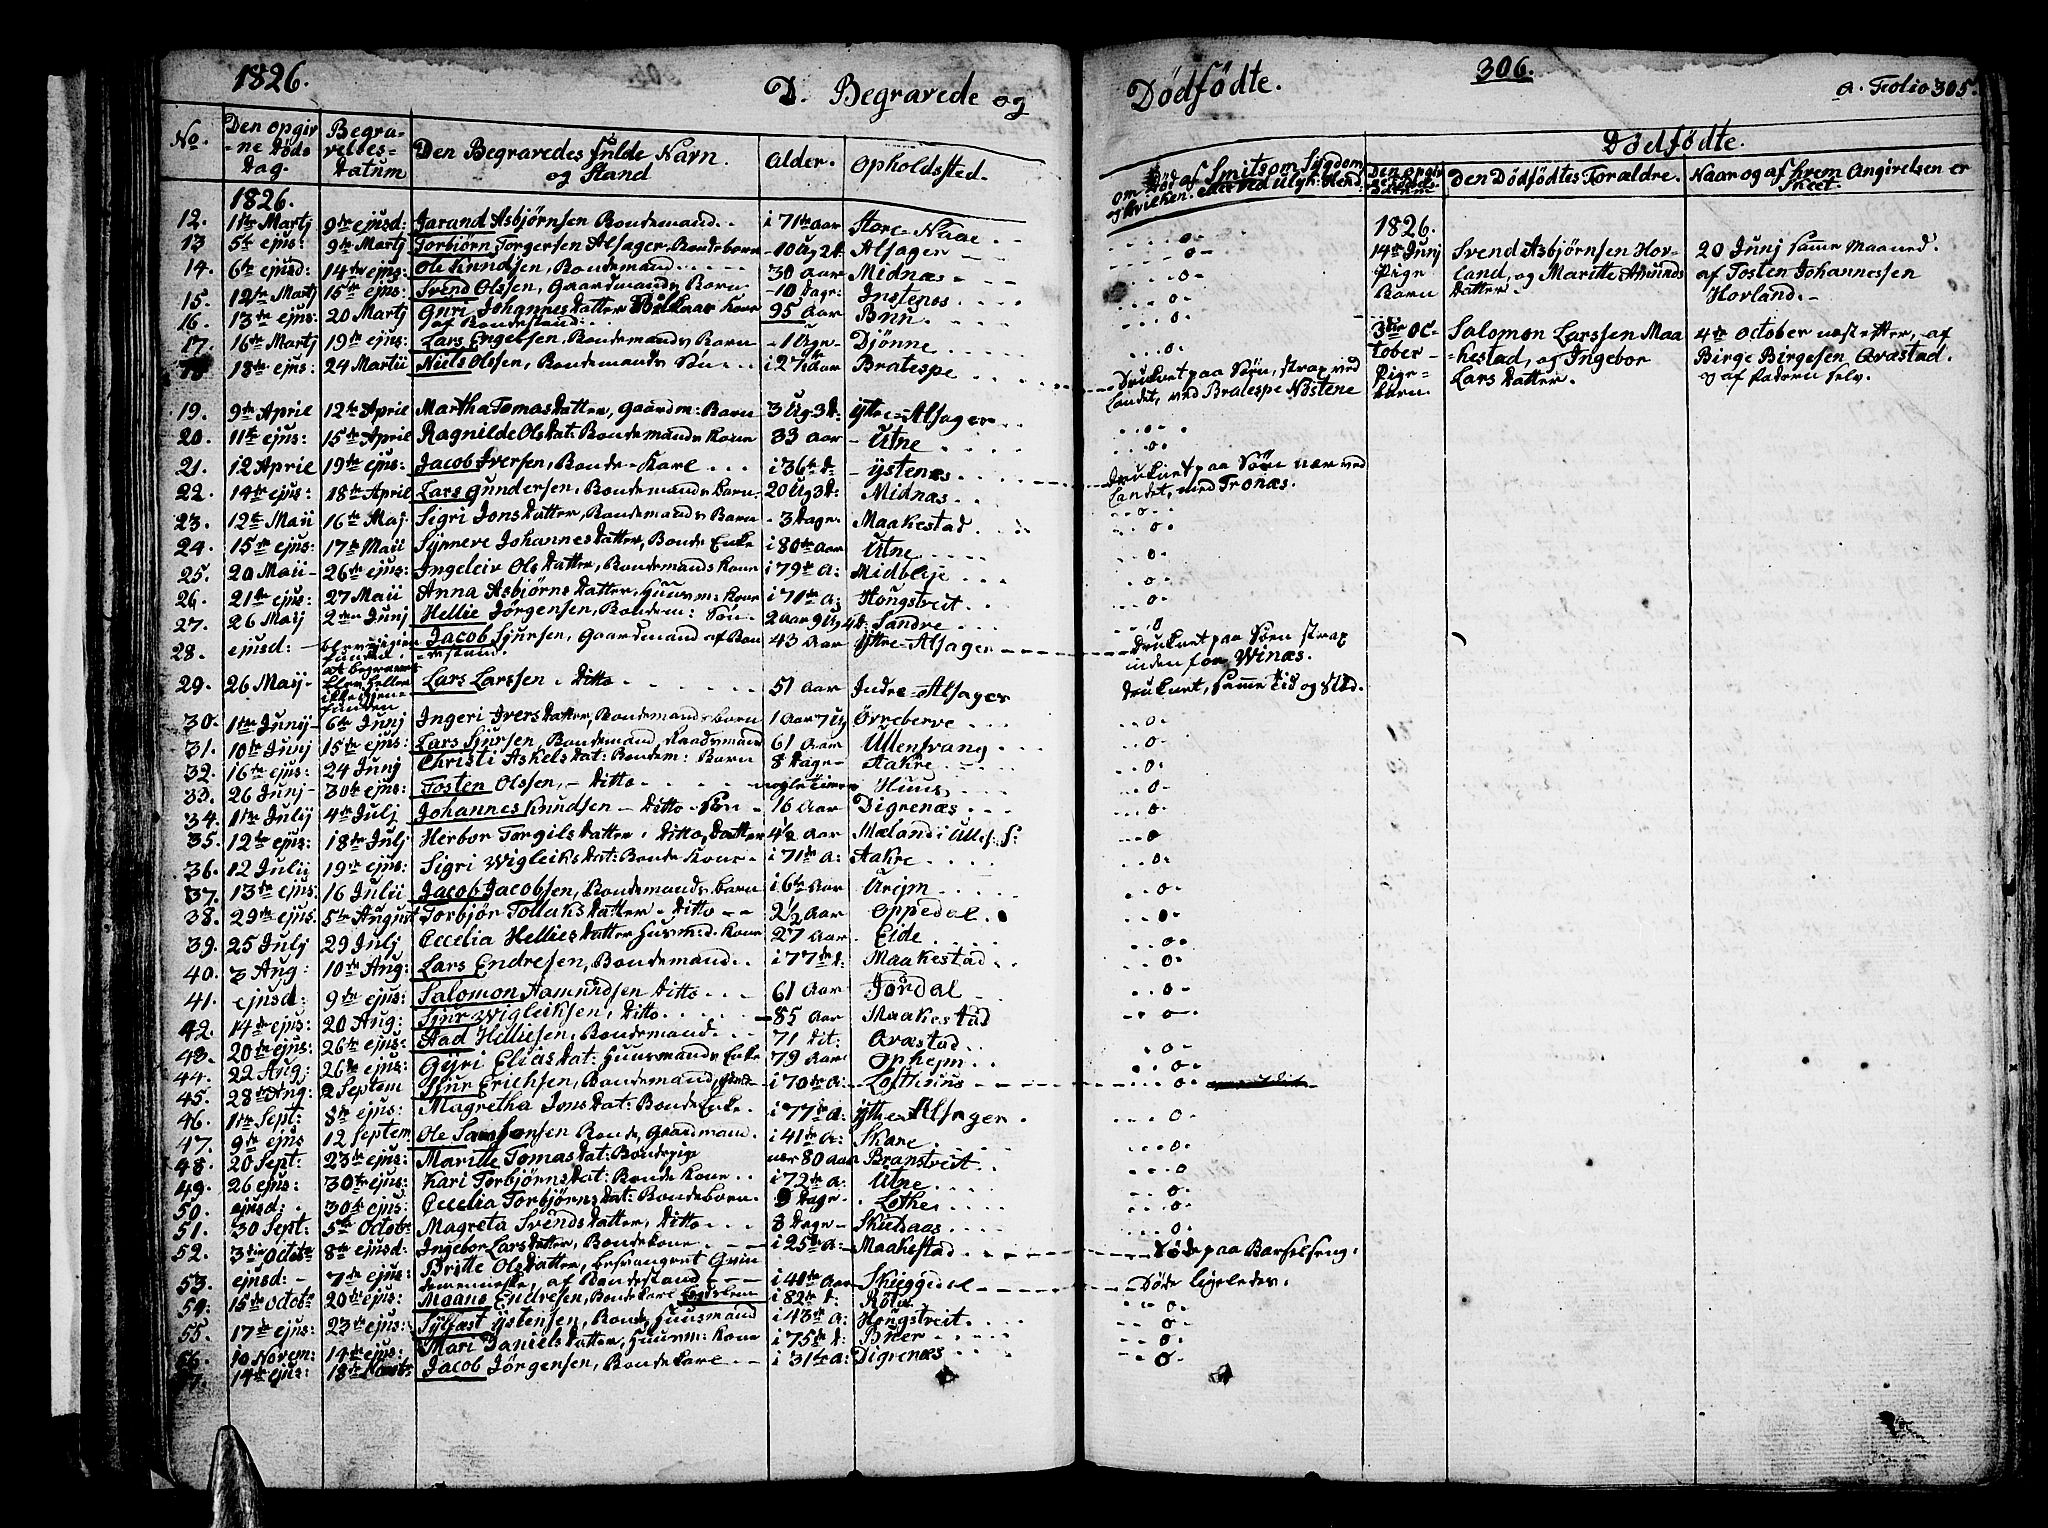 1826. D. Begravede og Dødfødte. 306. a. Folio 305.
No. Den opgivne Døds Dag. Begravelses Datum Den Begravedes fulde Navn og Stand Alder. Opholdsted. om Død af Smitsom Sygdom Dødfødte.
Den Dødfødtes Forældre. Naar og af hvem Angivelsen er skeet.
1826.
12. 1ste Martj 9de ejusd: Jarand Asbjørnsen Bondemand i 71de Aar Store Naae --o--
13 5te ejus: 9de Martj Torbiörn Torgersen Alsager Bondebarn 10 Ug 2d. Alsager --o--
14. 6te ejusd: 14de ejus: Ole Knudsen, Bondemand 30 Aar Midnæs --o--
15. 12te Martj 15de ejus: Svend Olssen, Gaardmands Barn 10 Dage Instenæs --o--
16. 13de ejus: 20 Martj Guri Johannes Datter Kone af Bondestand 95 Aar Bruu --o--
17. 16de Martj 19de ejus: Lars Engelsen, Bondemands Barn 1 Uge Djönne --o--
18 18de ejus: 24 Martii Niels Olssen, Bondemands Søn i 27de Aar Bratespe Druknet paa Søen, strax ved Landet, ved Bratespe Nøstene
19. 9de April 12te April Martha Tomas Datter, Gaardm: Barn 3 Ug 3d: ytre-Alsager --o--
20. 11te ejus: 15de April Ragnilde Ols Dat: Bondemands Kone 33 Aar Utne --o--
21. 12 April 19de ejus: Jacob Iversen, Bonde-Karl i 36te d. ystenæs Druknet paa Søen nær ved Landet, ved Tronæs.
22. 14de ejus: 18de April Lars Gundersen, Bondemands Barn 20 Ug 3d: Midnæs
23. 12te Maij 16de Maj Sigri Jons Datter, Bondemands Barn 3 Dage Maakestad --o--
24. 15de ejus: 17de Maii Synneve Johannes Datter, Bonde Enke i 80de Aar Utne --o--
25. 20 Maii 26de ejus: Ingeleiv Ols Datter, Bondemands Kone i 79de A: Midblije --o--
26. 21de ejus: 27 Maii Anna Asbjörns Datter, Huusm: Kone i 71de A: Hougstveit --o--
27. 26 Maij 2den Junj Hellie Jörgensen, Bondem: Søn 2 Aar 9 Ug 4d: Sandve --o--
28. ejusd: Jacob Sjursen, Gaardmand af Bondestand. 43 Aar Yttre-Alsager Druknet paa Søen strax inden for Winæs.
29. 26 Maij Lars Larssen Ditto 51 Aar Indre-Alsager Druknet, samme Tid og Sted.
30. 1ste Junij 6te Junj Ingeri Ivers Datter, Bondemandsbarn 1 Aar 7 Ug Örreberve --o--
31. 10de Junj 15de ejus: Lars Sjursen, Bondemand, 61 Aar Ullensvang --o--
32. 16de ejus: 24 Junij Christi Askels Dat: Bondem: Barn 8 Dage Aakre --o--
33. 26 Junj 30de ejus: Tosten Olssen, Ditto nogle timer Huus --o--
34. 1ste Julij 4de Julj Johannes Knudsen Ditto Søn 16 Aar Digrenæs --o--
35. 12te ejus: 18de Julj Herbor Torgils Datter Ditto, Datter 4½ Aar Mæland i Ulles: S: --o--
36. 12 Julij 19de ejus: Sigri Wigleiks Dat: Bonde Kone i 71de A: Aakre --o--
37. 13de ejus: 16 Julii Jacob Jacobsen, Bondemands barn i 6te Aar Urejm --o--
38. 29de ejus. 5te August Torbjör Tollaks Datter Ditto 2½ Aar Oppedal --o--
39. 25 Julj 29 Julj Cecelia Hellies Datter Huusm.d. Kone 27 Aar Eide --o--
40. 3 Aug: 10de Aug: Lars Endresen, Bondemand i 77de d: Maakestad --o--
41. ejusd: 9de ejus: Salomon Aamundsen Ditto 61 Aar Jordal --o--
42. 14de ejus: 20 Aug: Sjur Wigleiksen, Ditto 85 Aar Maakestad --o--
43. 20de ejus: 26de ejus: Aad Helliesen, Bondemand 71 Dit: Qvæstad --o--
44. 22 Aug: 26de ejus: Gÿri Elias Dat: Huusmands Enke 79 Aar Ophejm --o--
45. 28de Aug: 2 Septem Sjur Erichsen, Bondemand, i 70de A: Lofthuus --o--
46. 1ste Sept: 8de ejus: Magretha Jons Dat: Bonde Enke i 77de A: Yttre-Alsager --o--
47. 9de ejus 12 Septem Ole Samsonsen Bonde, Gaardmand i 41de A: Skare --o--
48. 20 Sept: 23de ejus: Maritte Tomas Dat: Bondepige nær 80 Aar Branstveit --o--
49. 26 ejus: 30de ejus: Kari Torbjörns Dat: Bonde Kone i 72de A. Utne --o--
50. ejusd: 30de ejus: Cecelia Torbjörns Dat: Bondebarn 9 Dage Lothe --o--
51. 30 Sept: 5te Octobr Magreta Svends Datter, Ditto 8 Dage Skieldaas --o--
52. 3die Octobr 8de ejusd: Ingebor Lars Datter, Bondekone i 25de A: Maakestad Døde paa Barselseng.
53. ejusd: 7de ejus: Britte Ols Datter, besvangret Qvindemenneske, af Bondestand i 41de Aar Skieggedal Døde ligeledes.
54. 15de Octobr 20de ejus: Maans Endresen, Bondekarl i 82de d: Röte --o--
55. 17de ejus: 23de ejus: Sylfæst ystensen, Bonde, Huusmand i 43de A: Hougstveit --o--
56. 10 Novem: 14de ejus: Mari Daniels Datter, Huusm: Kone i 75de d: Buer --o--
57. 14de ejus: 18de Novbr Jacob Jörgensen, Bondekarl i 31te A: Digrenæs --o--
1826.
14de Junj Pige Barn Svend Asbjørnsen Horland, og Maritte Amunds Datter. 20 Junj samme Maaned. af Tosten Johannessen Horland.
3die October Pigebarn. Salomon Larssen Maakestad, og Ingebor Lars Datter. 4de October næst efter, af Birge Birgesen Qvæstad. og af Faderen selv.